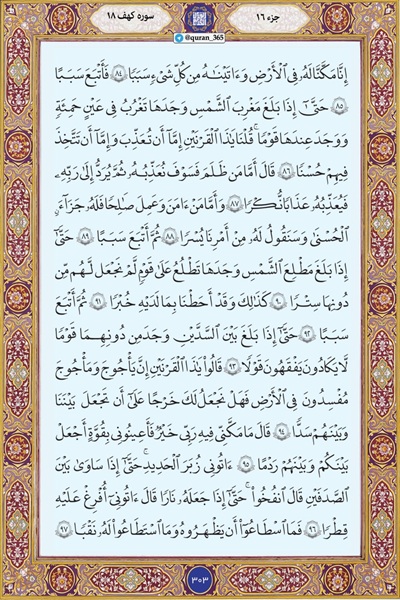 جزء ۱۶
سوره کهف ۱۸
@quran_365
إِنَّا مَكَّنَّا لَهُۥ فِي ٱلۡأَرۡضِ وَءَاتَيۡنَٰهُ مِن كُلِّ شَيۡءٖ سَبَبٗا ۸۴ فَأَتۡبَعَ سَبَبًا
۸۵ حَتَّىٰٓ إِذَا بَلَغَ مَغۡرِبَ ٱلشَّمۡسِ وَجَدَهَا تَغۡرُبُ فِي عَيۡنٍ حَمِئَةٖ
وَوَجَدَ عِندَهَا قَوۡمٗاۖ قُلۡنَا يَٰذَا ٱلۡقَرۡنَيۡنِ إِمَّآ أَن تُعَذِّبَ وَإِمَّآ أَن تَتَّخِذَ
فِيهِمۡ حُسۡنٗا ۸۶ قَالَ أَمَّا مَن ظَلَمَ فَسَوۡفَ نُعَذِّبُهُۥ ثُمَّ يُرَدُّ إِلَىٰ رَبِّهِۦ
فَيُعَذِّبُهُۥ عَذَابٗا نُّكۡرٗا ۸۷ وَأَمَّا مَنۡ ءَامَنَ وَعَمِلَ صَٰلِحٗا فَلَهُۥ جَزَآءً
ٱلۡحُسۡنَىٰۖ وَسَنَقُولُ لَهُۥ مِنۡ أَمۡرِنَا يُسۡرٗا ۸۸ ثُمَّ أَتۡبَعَ سَبَبًا ۸۹ حَتَّىٰٓ
إِذَا بَلَغَ مَطۡلِعَ ٱلشَّمۡسِ وَجَدَهَا تَطۡلُعُ عَلَىٰ قَوۡمٖ لَّمۡ نَجۡعَل لَّهُم مِّن
دُونِهَا سِتۡرٗا ۹۰ كَذَٰلِكَۖ وَقَدۡ أَحَطۡنَا بِمَا لَدَيۡهِ خُبۡرٗا ۹۱ ثُمَّ أَتۡبَعَ
سَبَبًا ۹۲ حَتَّىٰٓ إِذَا بَلَغَ بَيۡنَ ٱلسَّدَّيۡنِ وَجَدَ مِن دُونِهِمَا قَوۡمٗا
لَّا يَكَادُونَ يَفۡقَهُونَ قَوۡلٗا ۹۳ قَالُواْ يَٰذَا ٱلۡقَرۡنَيۡنِ إِنَّ يَأۡجُوجَ وَمَأۡجُوجَ
مُفۡسِدُونَ فِي ٱلۡأَرۡضِ فَهَلۡ نَجۡعَلُ لَكَ خَرۡجًا عَلَىٰٓ أَن تَجۡعَلَ بَيۡنَنَا
وَبَيۡنَهُمۡ سَدّٗا ۹۴ قَالَ مَا مَكَّنِّي فِيهِ رَبِّي خَيۡرٞ فَأَعِينُونِي بِقُوَّةٍ أَجۡعَلۡ
بَيۡنَكُمۡ وَبَيۡنَهُمۡ رَدۡمًا ۹۵ ءَاتُونِي زُبَرَ ٱلۡحَدِيدِۖ حَتَّىٰٓ إِذَا سَاوَىٰ بَيۡنَ
ٱلصَّدَفَيۡنِ قَالَ ٱنفُخُواْۖ حَتَّىٰٓ إِذَا جَعَلَهُۥ نَارٗا قَالَ ءَاتُونِيٓ أُفۡرِغۡ عَلَيۡهِ
قِطۡرٗا ۹۶ فَمَا ٱسۡطَٰعُوٓاْ أَن يَظۡهَرُوهُ وَمَا ٱسۡتَطَٰعُواْ لَهُۥ نَقۡبٗا ۹۷
۳۰۳